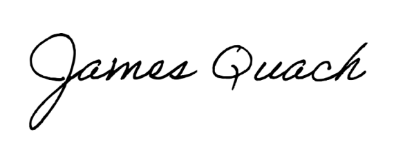 James Quach